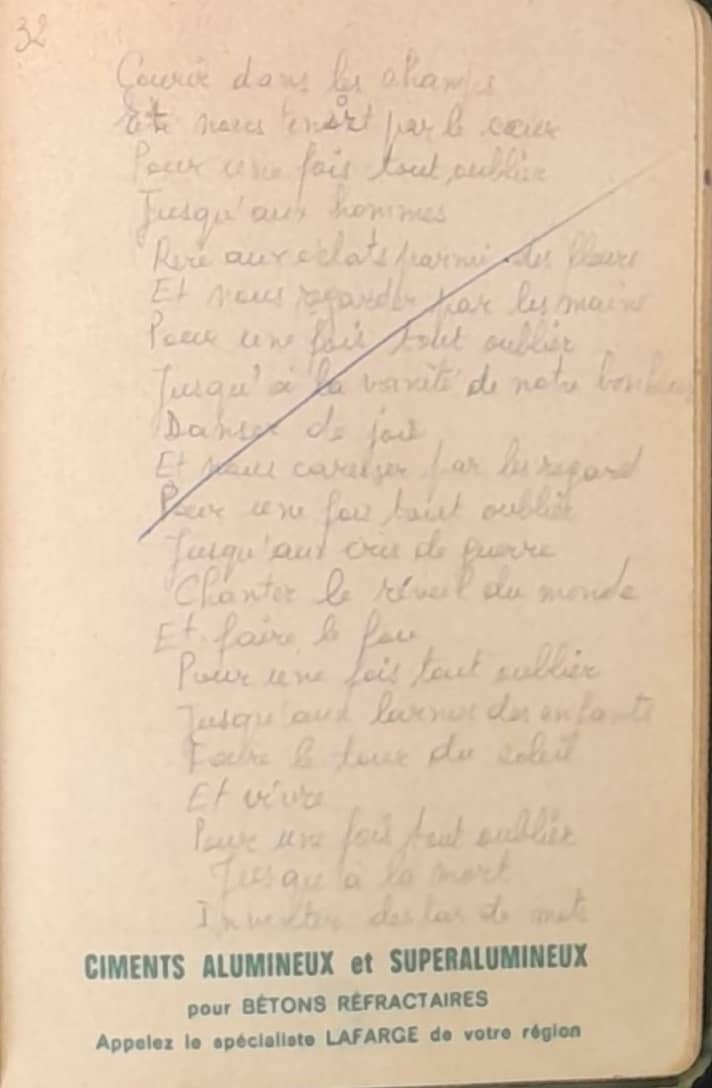 32
Courir dans les champs
Et nous par le cœur
Pour une fois tout oublier
Jusqu'aux hommes
Rire aux éclats parmi les fleurs
Et nous regarder par les mains
Pour une fois tout oublier
Jusqu'à la vanité de notre bonheur
Danser de joie
Et nous caresser par les regard
Pour une fois tout oublier
Jusqu'aux cris de guerre
Chanter le réveil du monde
Et faire le fou
Pour une fois tout oublier
Jusqu'aux larmes des enfants
Faire le tour du soleil
Et vivre
Pour une fois tout oublier
Jusqu'à la mort
Inventer des tas de mots
CIMENTS ALUMINEUX et SUPERALUMINEUX
pour BÉTONS RÉFRACTAIRES
Appelez le spécialiste LAFARGE de votre région